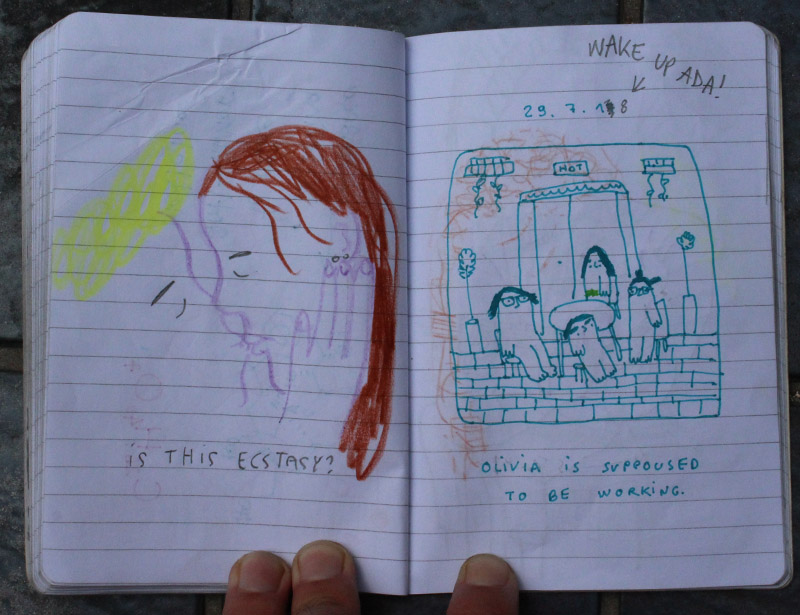 IS THIS ECSTASY?
WAKE UP ADA!
29.7.18
HOT
OLIVIA IS SUPPOUSED
TO BE WORKING.